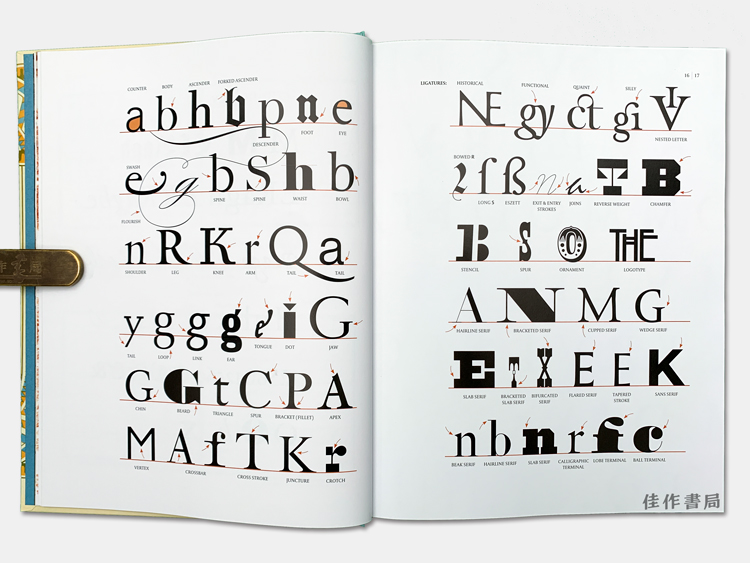 COUNTER BODY ASCENDER FORKED ASCENDER
abhhpne
DESCENDER FOOT EYE
SWASH
egbShb
FLOURISH SPINE SPINE WAIST BOWL
nRKrQa
SHOULDER LEG KNEE ARM TAIL TAIL
yggggeiG
TAIL LOOP LINK EAR TONGUE DOT JAW
GGtCPA
CHIN BEARD TRIANGLE SPUR BRACKET (FILLET) APEX
MAfTKr
VERTEX CROSSBAR CROSS STROKE JUNCTURE CROTCH
16 | 17
LIGATURES: HISTORICAL FUNCTIONAL QUAINT SILLY
NE gy ct gi
NESTED LETTER
BOWED R
ſ ß n a T B
LONG S ESZETT EXIT & ENTRY STROKES JOINS REVERSE WEIGHT CHAMFER
B S O THE
STENCIL SPUR ORNAMENT LOGOTYPE
A N M G
HAIRLINE SERIF BRACKETED SERIF CUPPED SERIF WEDGE SERIF
E T X E E K
SLAB SERIF BRACKETED SLAB SERIF BIFURCATED SERIF FLARED SERIF TAPERED STROKE SANS SERIF
nbnrfc
BEAK SERIF HAIRLINE SERIF SLAB SERIF CALLIGRAPHIC TERMINAL LOBE TERMINAL BALL TERMINAL
作書局
佳作書局